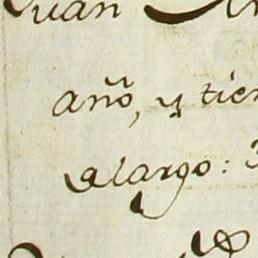 Juan
año, y tien
alargo: 3